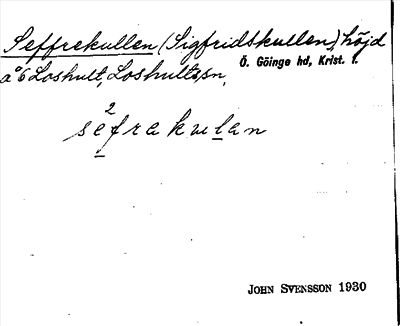 Seffrekullen (Sigfridskullen), höjd
å 6 Loshult, Loshults sn, Ö. Göinge hd, Krist. l.
2
sefrakulan
JOHN SVENSSON 1930